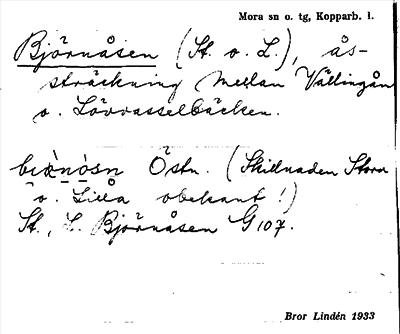 Mora sn o. tg, Kopparb. l.
Björnåsen (St. o. L.), ås-
sträckning mellan Vällingån
o. Lövvasselbäcken.
Östn. (Skillnaden Stora
o. Lilla obekant!)
St., L. Björnåsen G107.
Bror Lindén 1933